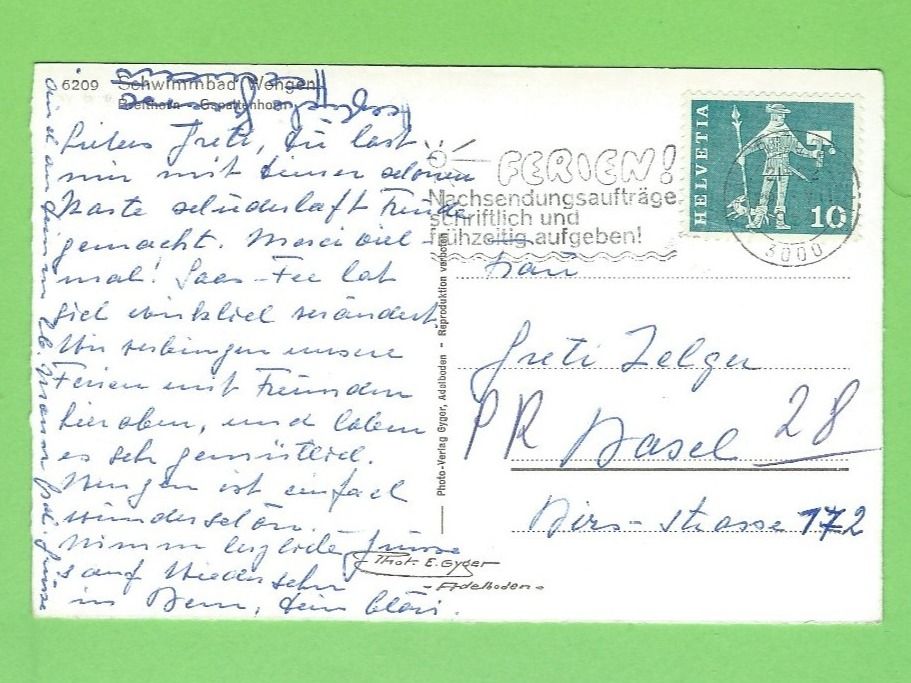 6209 Schwimmbad Wengen
Breithorn - Gspaltenhorn
Liebes Greti, du hast
mir mit deiner schönen
Karte schüderhaft Freude
gemacht. Merci viel-
mal! Saas-Fee hat
sich wirklich verändert.
Wir verbringen unsere
Ferien mit Freunden
hier oben, und haben
es sehr gemütlich.
Wengen ist einfach
wunderschön.
Nimm herzliche Grüsse
's auf Wiedersehn
in Bern, dein Cläri.
FERIEN!
Nachsendungsaufträge
schriftlich und
frühzeitig aufgeben!
HELVETIA
10
3000
Photo-Verlag Gyger, Adelboden - Reproduktion verboten
Frau
Greti Zelger
PR Basel 28
Birs-Strasse 172
Phot. E. Gyger
- Adelboden -